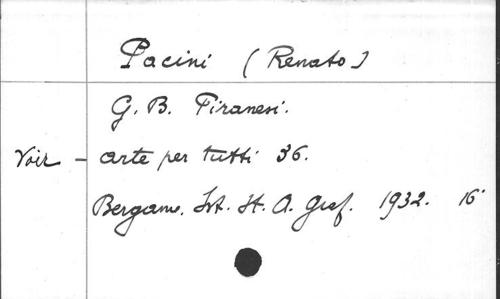 Pacini (Renato)
G. B. Piranesi.
Voir - arte per tutti 36.
Bergamo. Ist. It. A. Graf. 1932. 16°